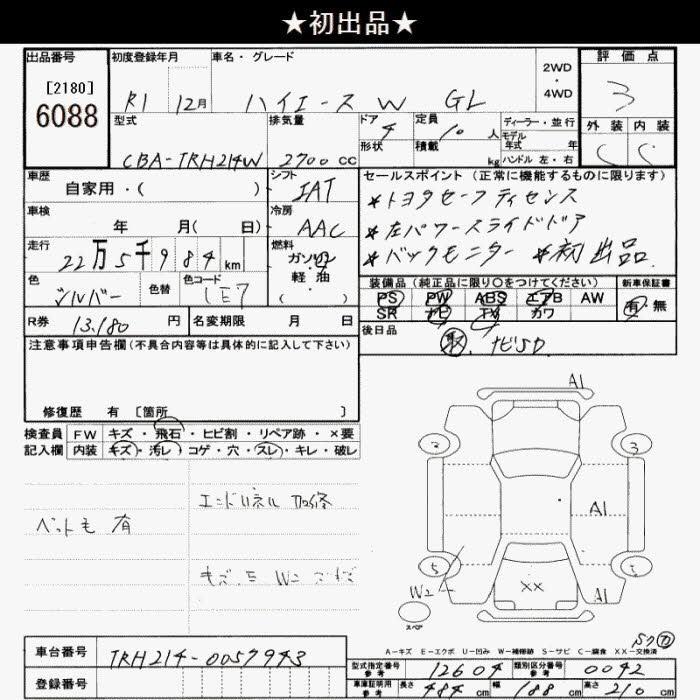 ★初出品★
出品番号 初度登録年月 車名・グレード 2WD・4WD 評価点
[2180]
6088 R1 12月 ハイエース W GL 3
型式 排気量 ドア 4 定員 10 人 ディーラー・並行 外装 内装
形状 積載 kg モデル年式 年 C C
CBA-TRH214W 2700 cc ハンドル 左・右
車歴 シフト セールスポイント (正常に機能するものに限ります)
自家用・( ) IAT ＊トヨタセーフティセンス
車検 冷房 ＊左パワースライドドア
年 月( 日) AAC ＊バックモニター ＊初出品
走行 22万5千984km 燃料 ガソリン・軽油 ( )
装備品 (純正品に限り○をつけてください) 新車保証書
色 シルバー 色替 色コード 1E7 PS PW ABS エアB AW 有 無
SR ナビ TV カワ
R券 13.180 円 名変期限 月 日 後日品 取, ナビSD
注意事項申告欄(不具合内容等は具体的に記入して下さい)
修復歴 有 [箇所 ]
検査員 FW キズ・飛石・ヒビ割・リペア跡・×要
記入欄 内装 キズ・汚レ・コゲ・穴・スレ・キレ・破レ
ペットも 有
A1
2 3
A1
5
W2 XX A1
スペア
A-キズ E-エクボ U-凹み W-補修跡 S-サビ C-腐食 XX-交換済
車台番号 TRH214-0057943
登録番号
型式指定番号 参考 12604 類別区分番号 参考 0042
車庫証明用 参考 長さ 484 cm 幅 188 cm 高さ 210 cm